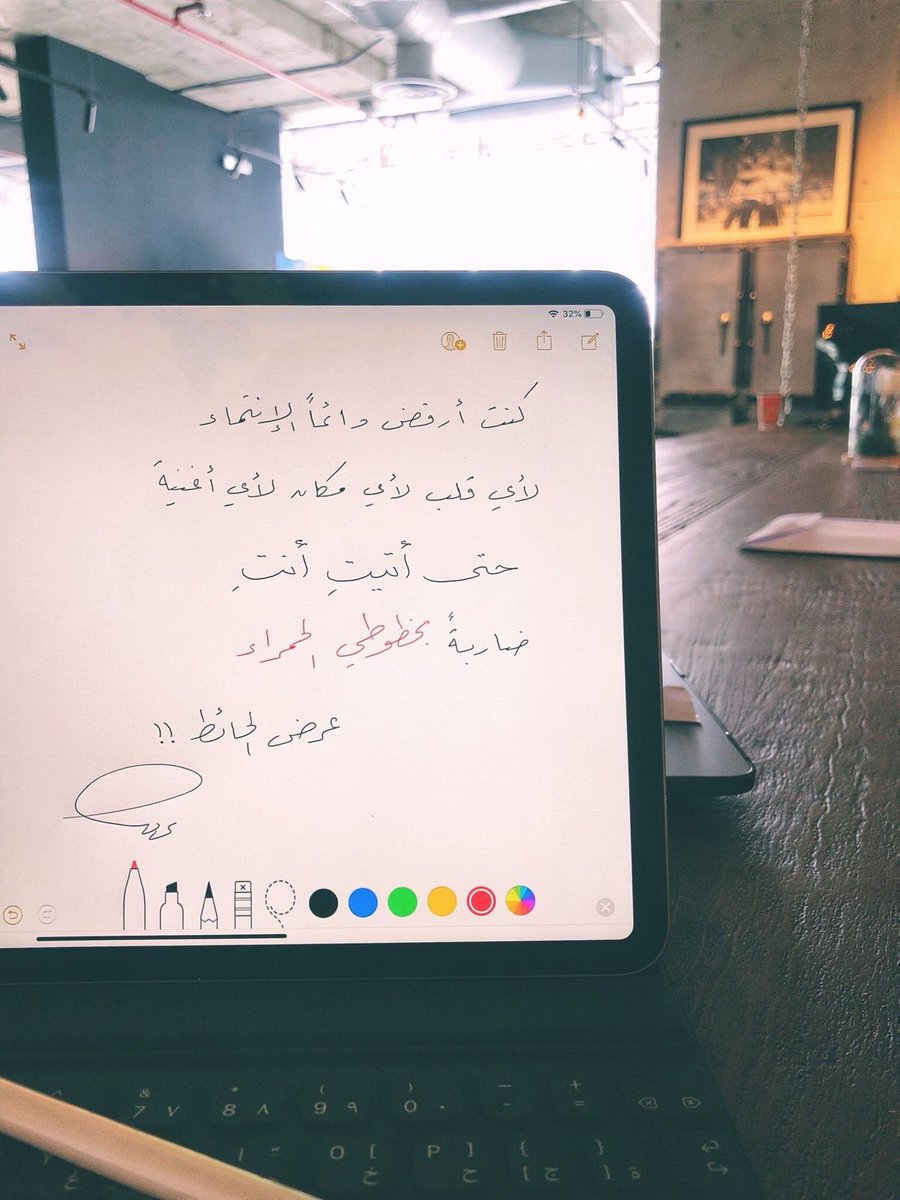 32%
كنت أرفض دائماً الإنتماء
لأي قلب لأي مكان لأي أغنية
حتى أتيتِ أنتِ
ضاربةً بخطوطي الحمراء
عرض الحائط !!
& * ( ) _ +
7 ٧ 8 ٨ 9 ٩ 0 ٠ - =
O [ P ] { }
خ ح [ ج ] ة